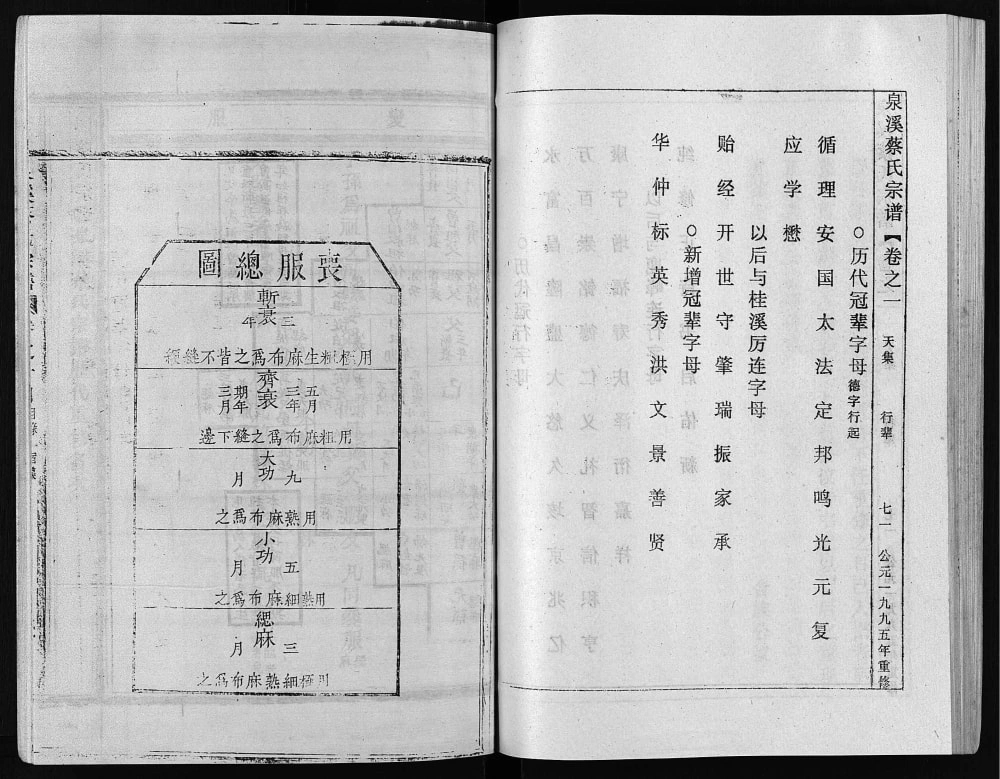 泉溪蔡氏宗谱【卷之一 天集 行辈 七二 公元一九九五年重修
○历代冠辈字母 德字行起
循理安国太法定邦鸣光元复
应学懋
以后与桂溪厉连字母
贻经开世守肇瑞振家承
○新增冠辈字母
华仲标英秀洪文景善贤
喪服總圖
斬衰
三年
用極粗生麻布爲之皆不縫
齊衰
五月
三年
期年
三月
用粗麻布爲之縫下邊
大功
九月
用熟麻布爲之
小功
五月
用熟細麻布爲之
緦麻
三月
用極細熟麻布爲之